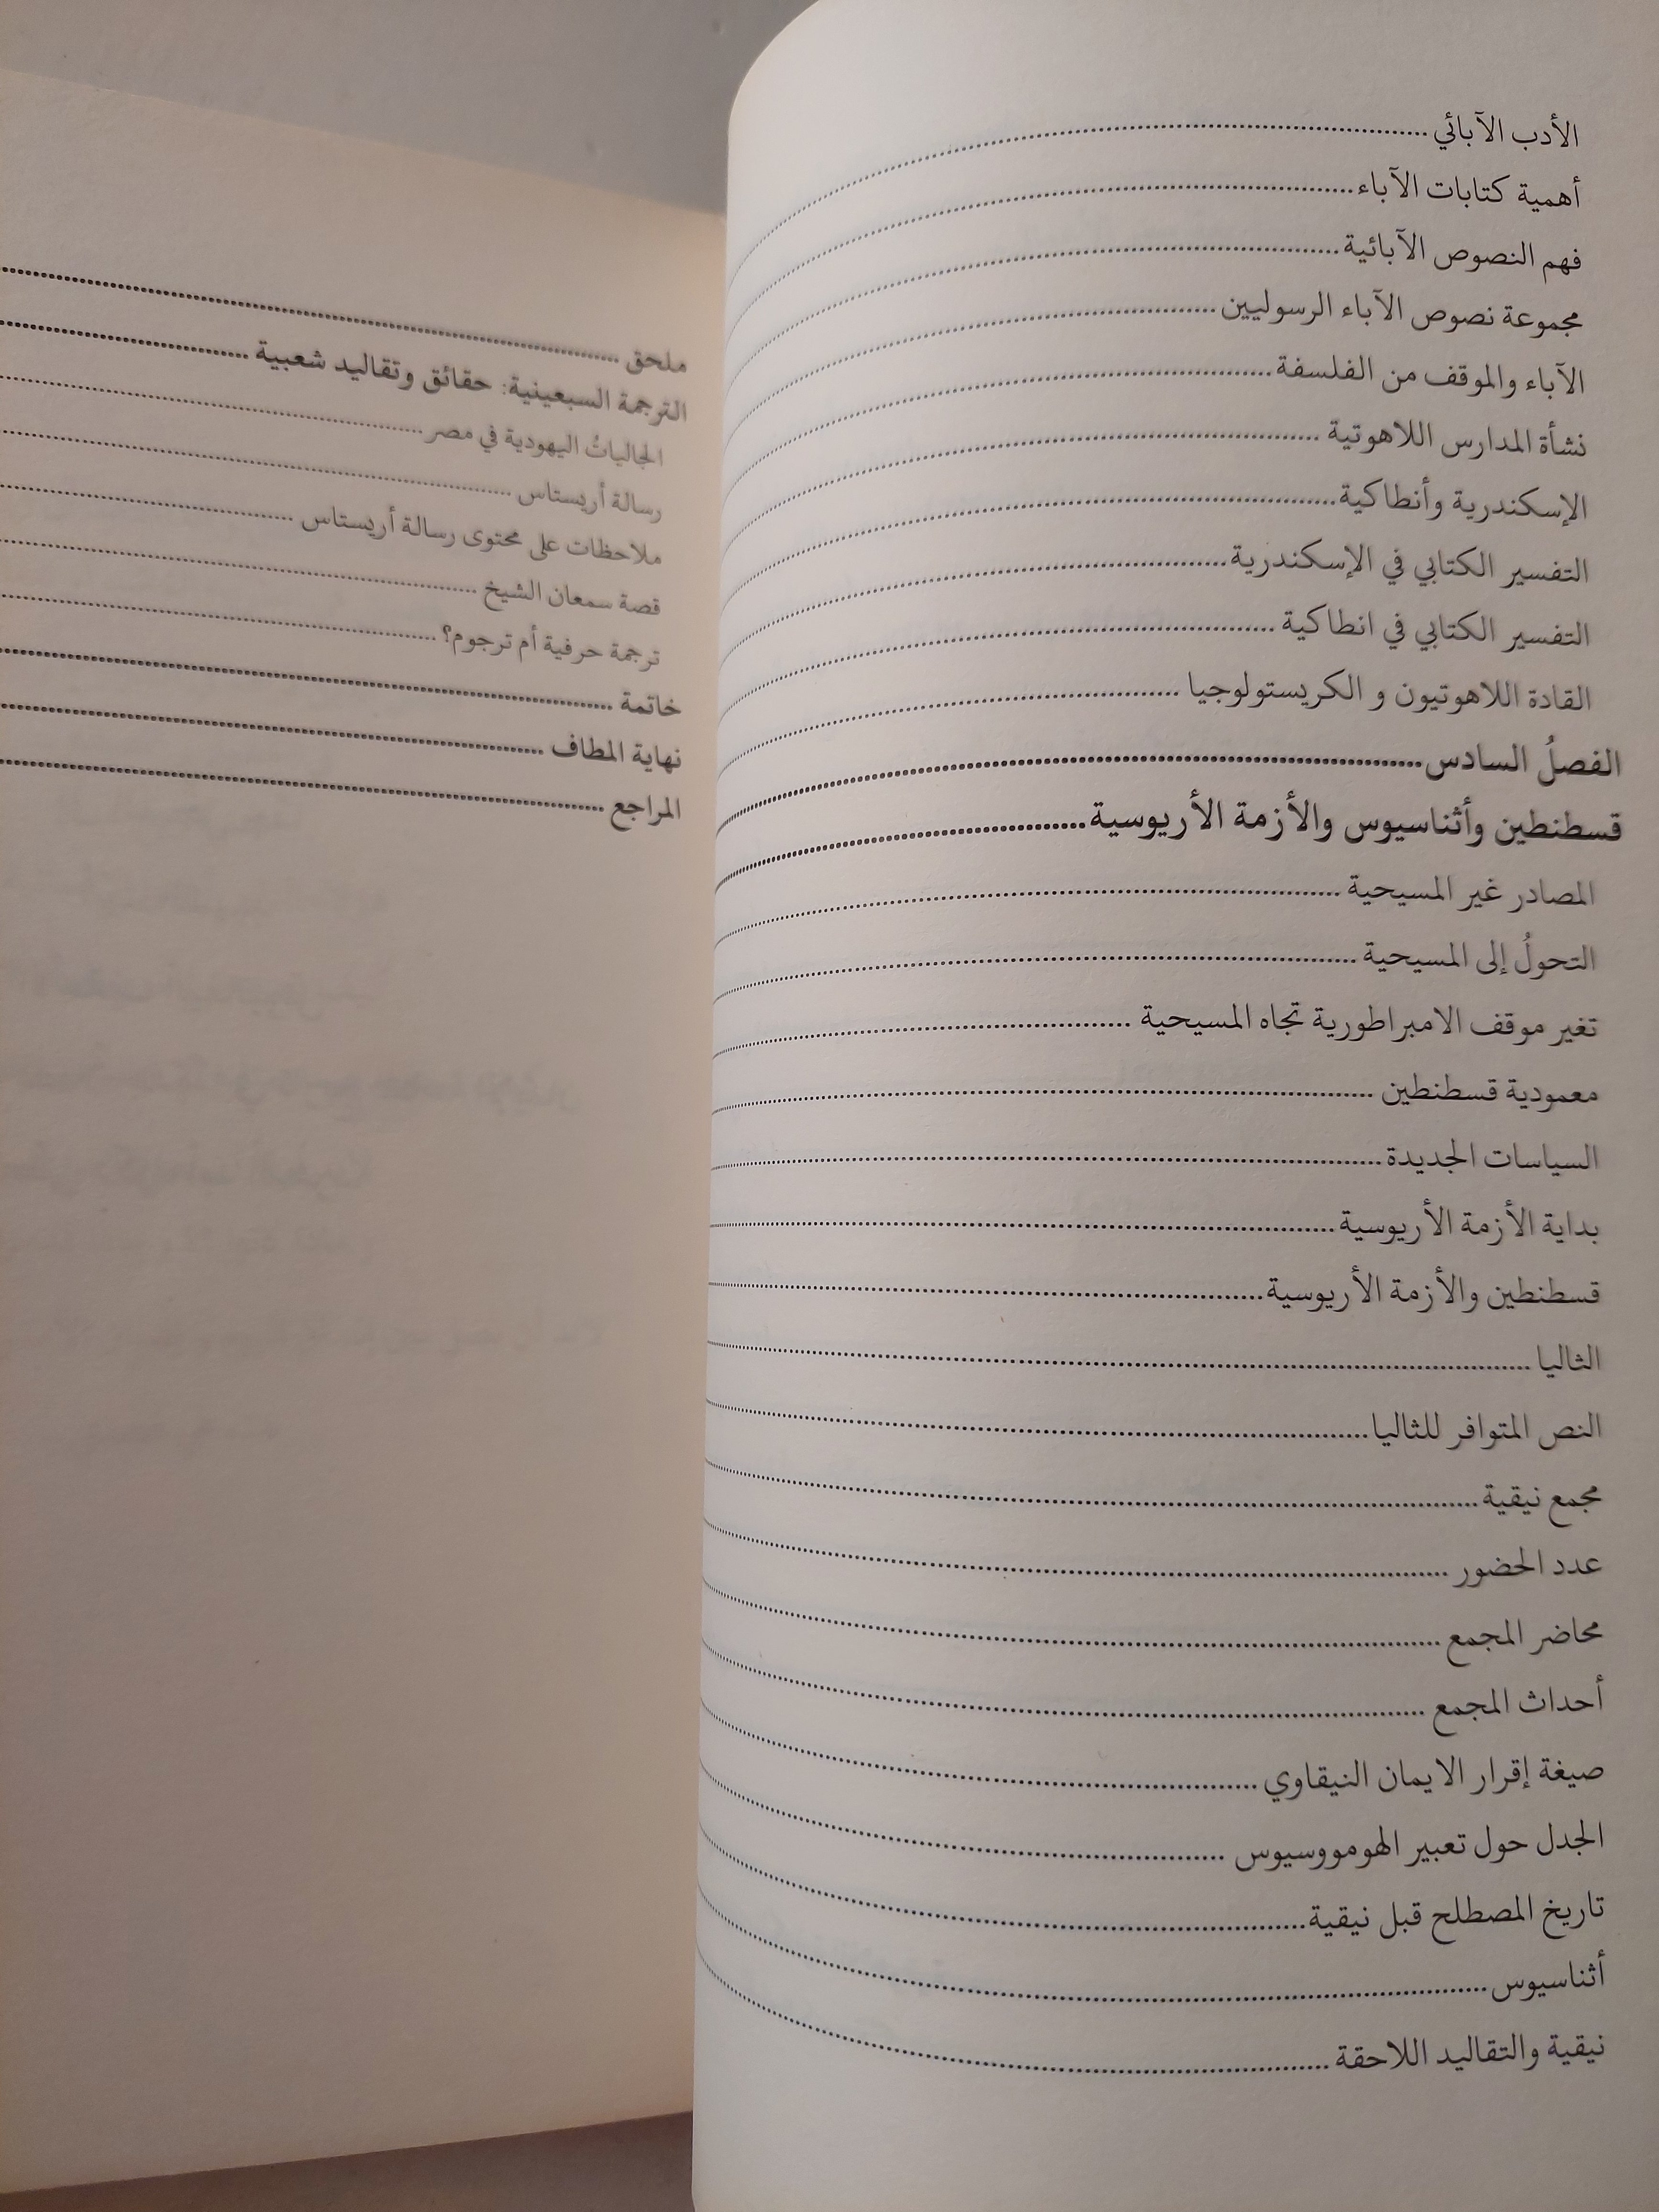 الأدب الآبائي
أهمية كتابات الآباء
فهم النصوص الآبائية
مجموعة نصوص الآباء الرسوليين
الآباء والموقف من الفلسفة
نشأة المدارس اللاهوتية
الإسكندرية وأنطاكية
التفسير الكتابي في الإسكندرية
التفسير الكتابي في انطاكية
القادة اللاهوتيون و الكريستولوجيا
الفصلُ السادس
قسطنطين وأثناسيوس والأزمة الأريوسية
المصادر غير المسيحية
التحولُ إلى المسيحية
تغير موقف الامبراطورية تجاه المسيحية
معمودية قسطنطين
السياسات الجديدة
بداية الأزمة الأريوسية
قسطنطين والأزمة الأريوسية
الثاليا
النص المتوافر للثاليا
مجمع نيقية
عدد الحضور
محاضر المجمع
أحداث المجمع
صيغة إقرار الايمان النيقاوي
الجدل حول تعبير الهومووسيوس
تاريخ المصطلح قبل نيقية
أثناسيوس
نيقية والتقاليد اللاحقة
ملحق
الترجمة السبعينية: حقائق وتقاليد شعبية
الجالياتُ اليهودية في مصر
رسالة أريستاس
ملاحظات على محتوى رسالة أريستاس
قصة سمعان الشيخ
ترجمة حرفية أم ترجوم؟
خاتمة
نهاية المطاف
المراجع